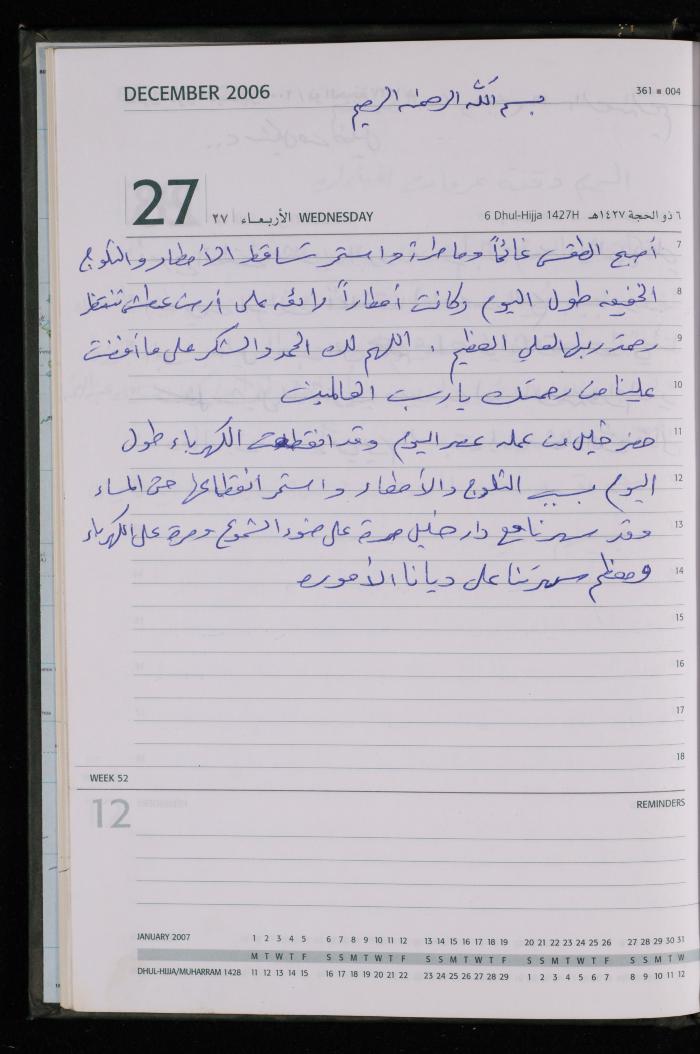 DECEMBER 2006
بسم الله الرحمن الرحيم
361 ■ 004
27 ٢٧ الأربعاء WEDNESDAY 6 Dhul-Hijja 1427H ٦ ذو الحجة ١٤٢٧هـ
7 أصبح الطقس غائماً وماطراً واستمر تساقط الأمطار والثلوج
8 الخفيفه طول اليوم وكانت أمطاراً رائعه على أرض عطشى تنتظر
9 رحمة ربها العلي العظيم . اللهم لك الحمد والشكر على ما أفضت
10 علينا من رحمتك يا رب العالمين
11 حضر خليل من عمله عصر اليوم وقد انقطعت الكهرباء طول
12 اليوم بسبب الثلوج والأمطار واستمر انقطاعها حتى المساء
13 وقد سهرنا مع دار خليل مرة على ضوء الشموع ومرة على الكهرباء
14 ومعظم سهرتنا على ديانا الأموره
15
16
17
18
WEEK 52
12 REMINDERS
JANUARY 2007 1 2 3 4 5 6 7 8 9 10 11 12 13 14 15 16 17 18 19 20 21 22 23 24 25 26 27 28 29 30 31
M T W T F S S M T W T F S S M T W T F S S M T W T F S S M T W
DHUL-HIJJA/MUHARRAM 1428 11 12 13 14 15 16 17 18 19 20 21 22 23 24 25 26 27 28 29 1 2 3 4 5 6 7 8 9 10 11 12